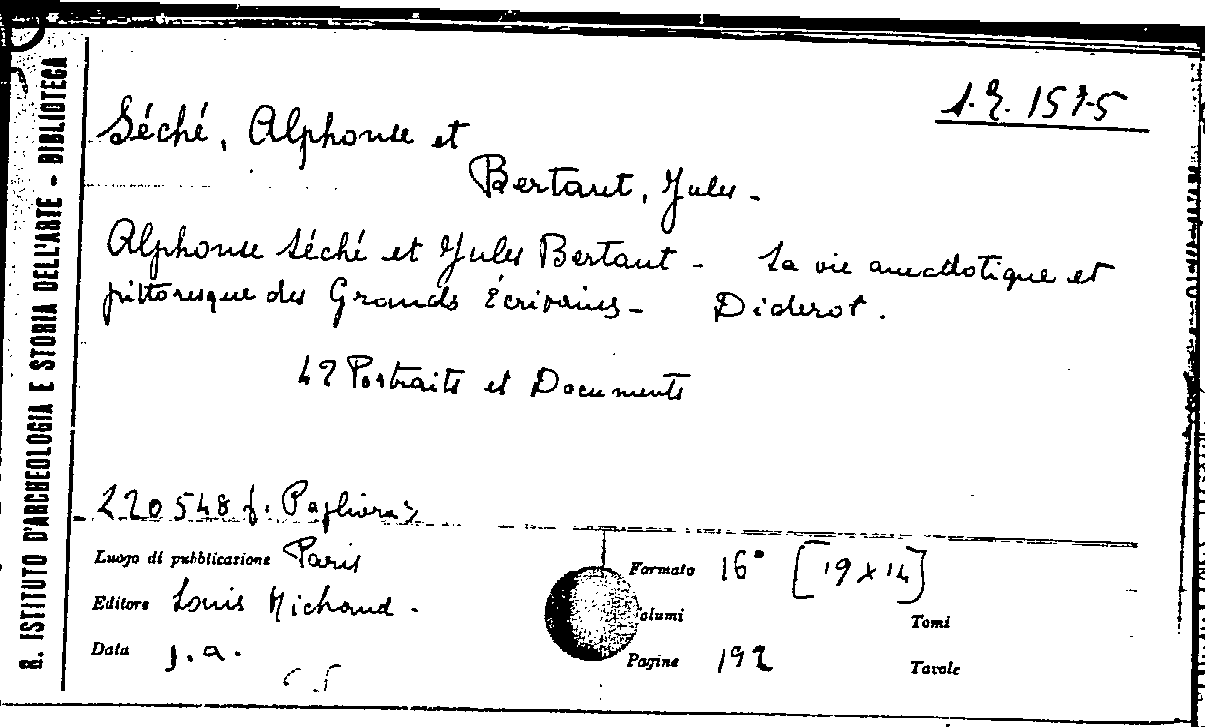 R. ISTITUTO D'ARCHEOLOGIA E STORIA DELL'ARTE - BIBLIOTECA
Séché, Alphonse et
Bertaut, Jules -
Alphonse Séché et Jules Bertaut - La vie anecdotique et
pittoresque des Grands Écrivains - Diderot.
42 Portraits et Documents
220548 f.
Luogo di pubblicazione Paris
Formato 16° [19 x 14]
Editore Louis Michaud -
Volumi Tomi
Data s. a.
Pagine 192 Tavole